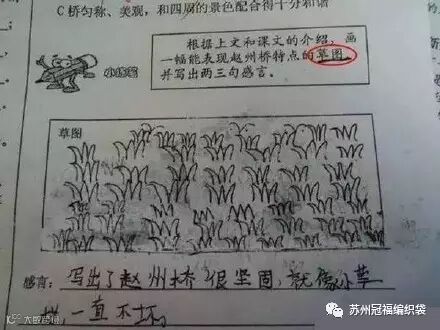 C桥匀称、美观，和四周的景色配合得十分和谐
根据上文和课文的介绍，画
一幅能表现赵州桥特点的草图
并写出两三句感言。
小练笔
草图
感言：写出了赵州桥很坚固，就像小草
一直不坏。
苏州冠福编织袋